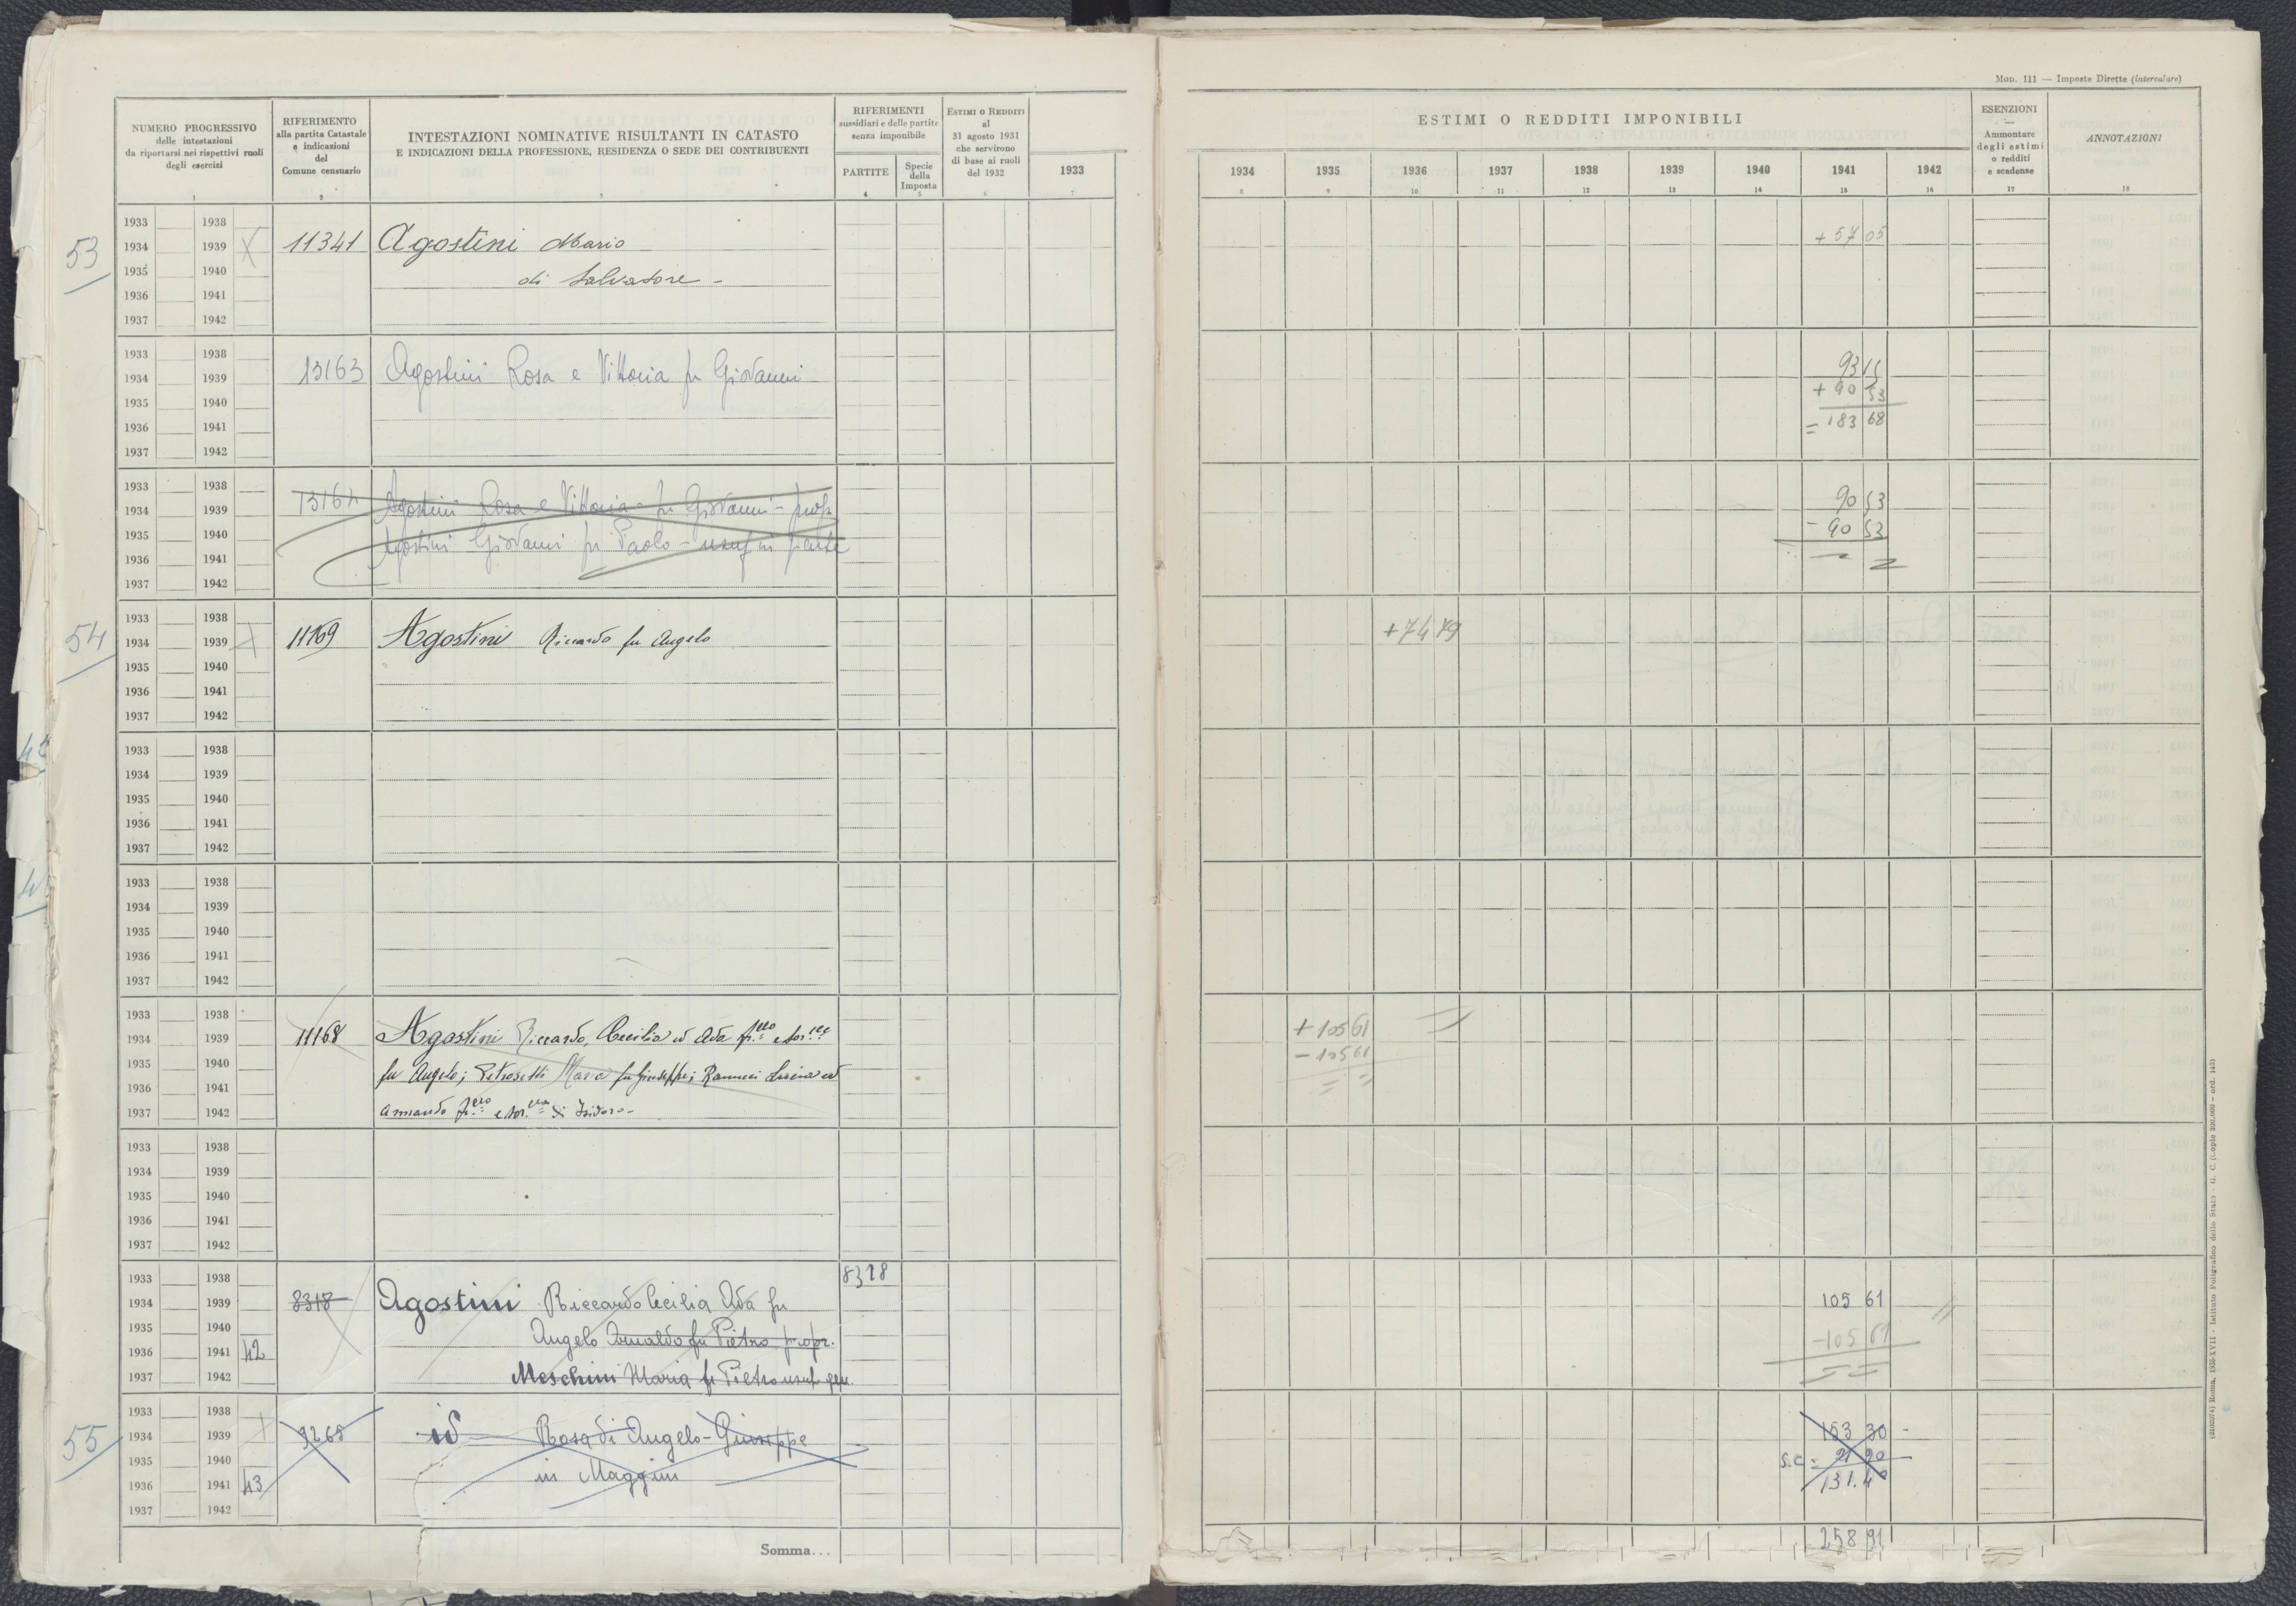 Mod. 111 — Imposte Dirette (intercalare)
NUMERO PROGRESSIVO
delle intestazioni
da riportarsi nei rispettivi ruoli
degli esercizi
1
RIFERIMENTO
alla partita Catastale
e indicazioni
del
Comune censuario
2
INTESTAZIONI NOMINATIVE RISULTANTI IN CATASTO
E INDICAZIONI DELLA PROFESSIONE, RESIDENZA O SEDE DEI CONTRIBUENTI
3
RIFERIMENTI
sussidiari e delle partite
senza imponibile
PARTITE
4
Specie
della
Imposta
5
ESTIMI O REDDITI
al
31 agosto 1931
che servirono
di base ai ruoli
del 1932
6
1933
7
ESTIMI O REDDITI IMPONIBILI
1934 1935 1936 1937 1938 1939 1940 1941 1942
8 9 10 11 12 13 14 15 16
ESENZIONI
—
Ammontare
degli estimi
o redditi
e scadense
17
ANNOTAZIONI
18
53
1933 1938
1934 1939 X 11341 Agostini Mario + 57 05
1935 1940 di Salvatore -
1936 1941
1937 1942
1933 1938 93 15
1934 1939 13163 Agostini Rosa e Vittoria fu Giovanni + 90 53
1935 1940 = 183 68
1936 1941
1937 1942
1933 1938 90 53
1934 1939 13164 Agostini Rosa e Vittoria - fu Giovanni - propr
1935 1940 Agostini Giovanni fu Paolo - usuf in parte - 90 53
1936 1941
1937 1942
54
1933 1938
1934 1939 X 11169 Agostini Riccardo fu Angelo + 74 79
1935 1940
1936 1941
1937 1942
1933 1938
1934 1939
1935 1940
1936 1941
1937 1942
1933 1938
1934 1939
1935 1940
1936 1941
1937 1942
1933 1938
1934 1939 11168 Agostini Riccardo, Cecilia ed Ada fr.llo e sor.lle + 105 61
1935 1940 fu Angelo; Petrosetti Maria fu Giuseppe; Ranucci Lucina ed - 105 61
1936 1941
1937 1942 Armando fr.llo e sor.lla di Isidoro -
1933 1938
1934 1939
1935 1940
1936 1941
1937 1942
1933 1938 8318
1934 1939 8318 Agostini Riccardo Cecilia Ada fu 105 61
1935 1940 Angelo Arnaldo fu Pietro propr. - 105 61
1936 1941 42
1937 1942 Meschini Maria fu Pietro usuf. gen.
55
1933 1938
1934 1939 X 9265 id Rosa di Angelo - Giuseppe 153 30 -
1935 1940 in Maggini s.c = 21 90
1936 1941 43 131.40
1937 1942
Somma... 258 91
(2102074) Roma, 1938-XVII - Istituto Poligrafico dello Stato - G. C. (Copie 300.000 - ord. 143)